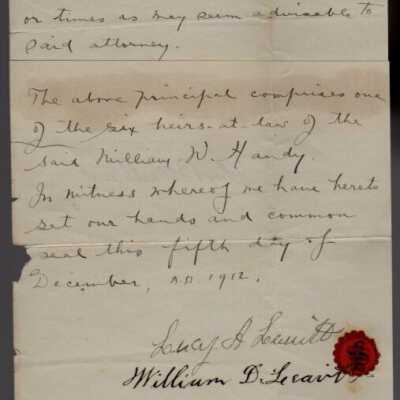 or times as may seem advisable to
said attorney.
The above principal comprises one
of the six heirs-at-law of the
said William W. Handy.
In witness whereof we have hereto
set our hands and common
seal this fifth day of
December, A.D. 1912.
Lucy A Leavitt
William D. Leavitt